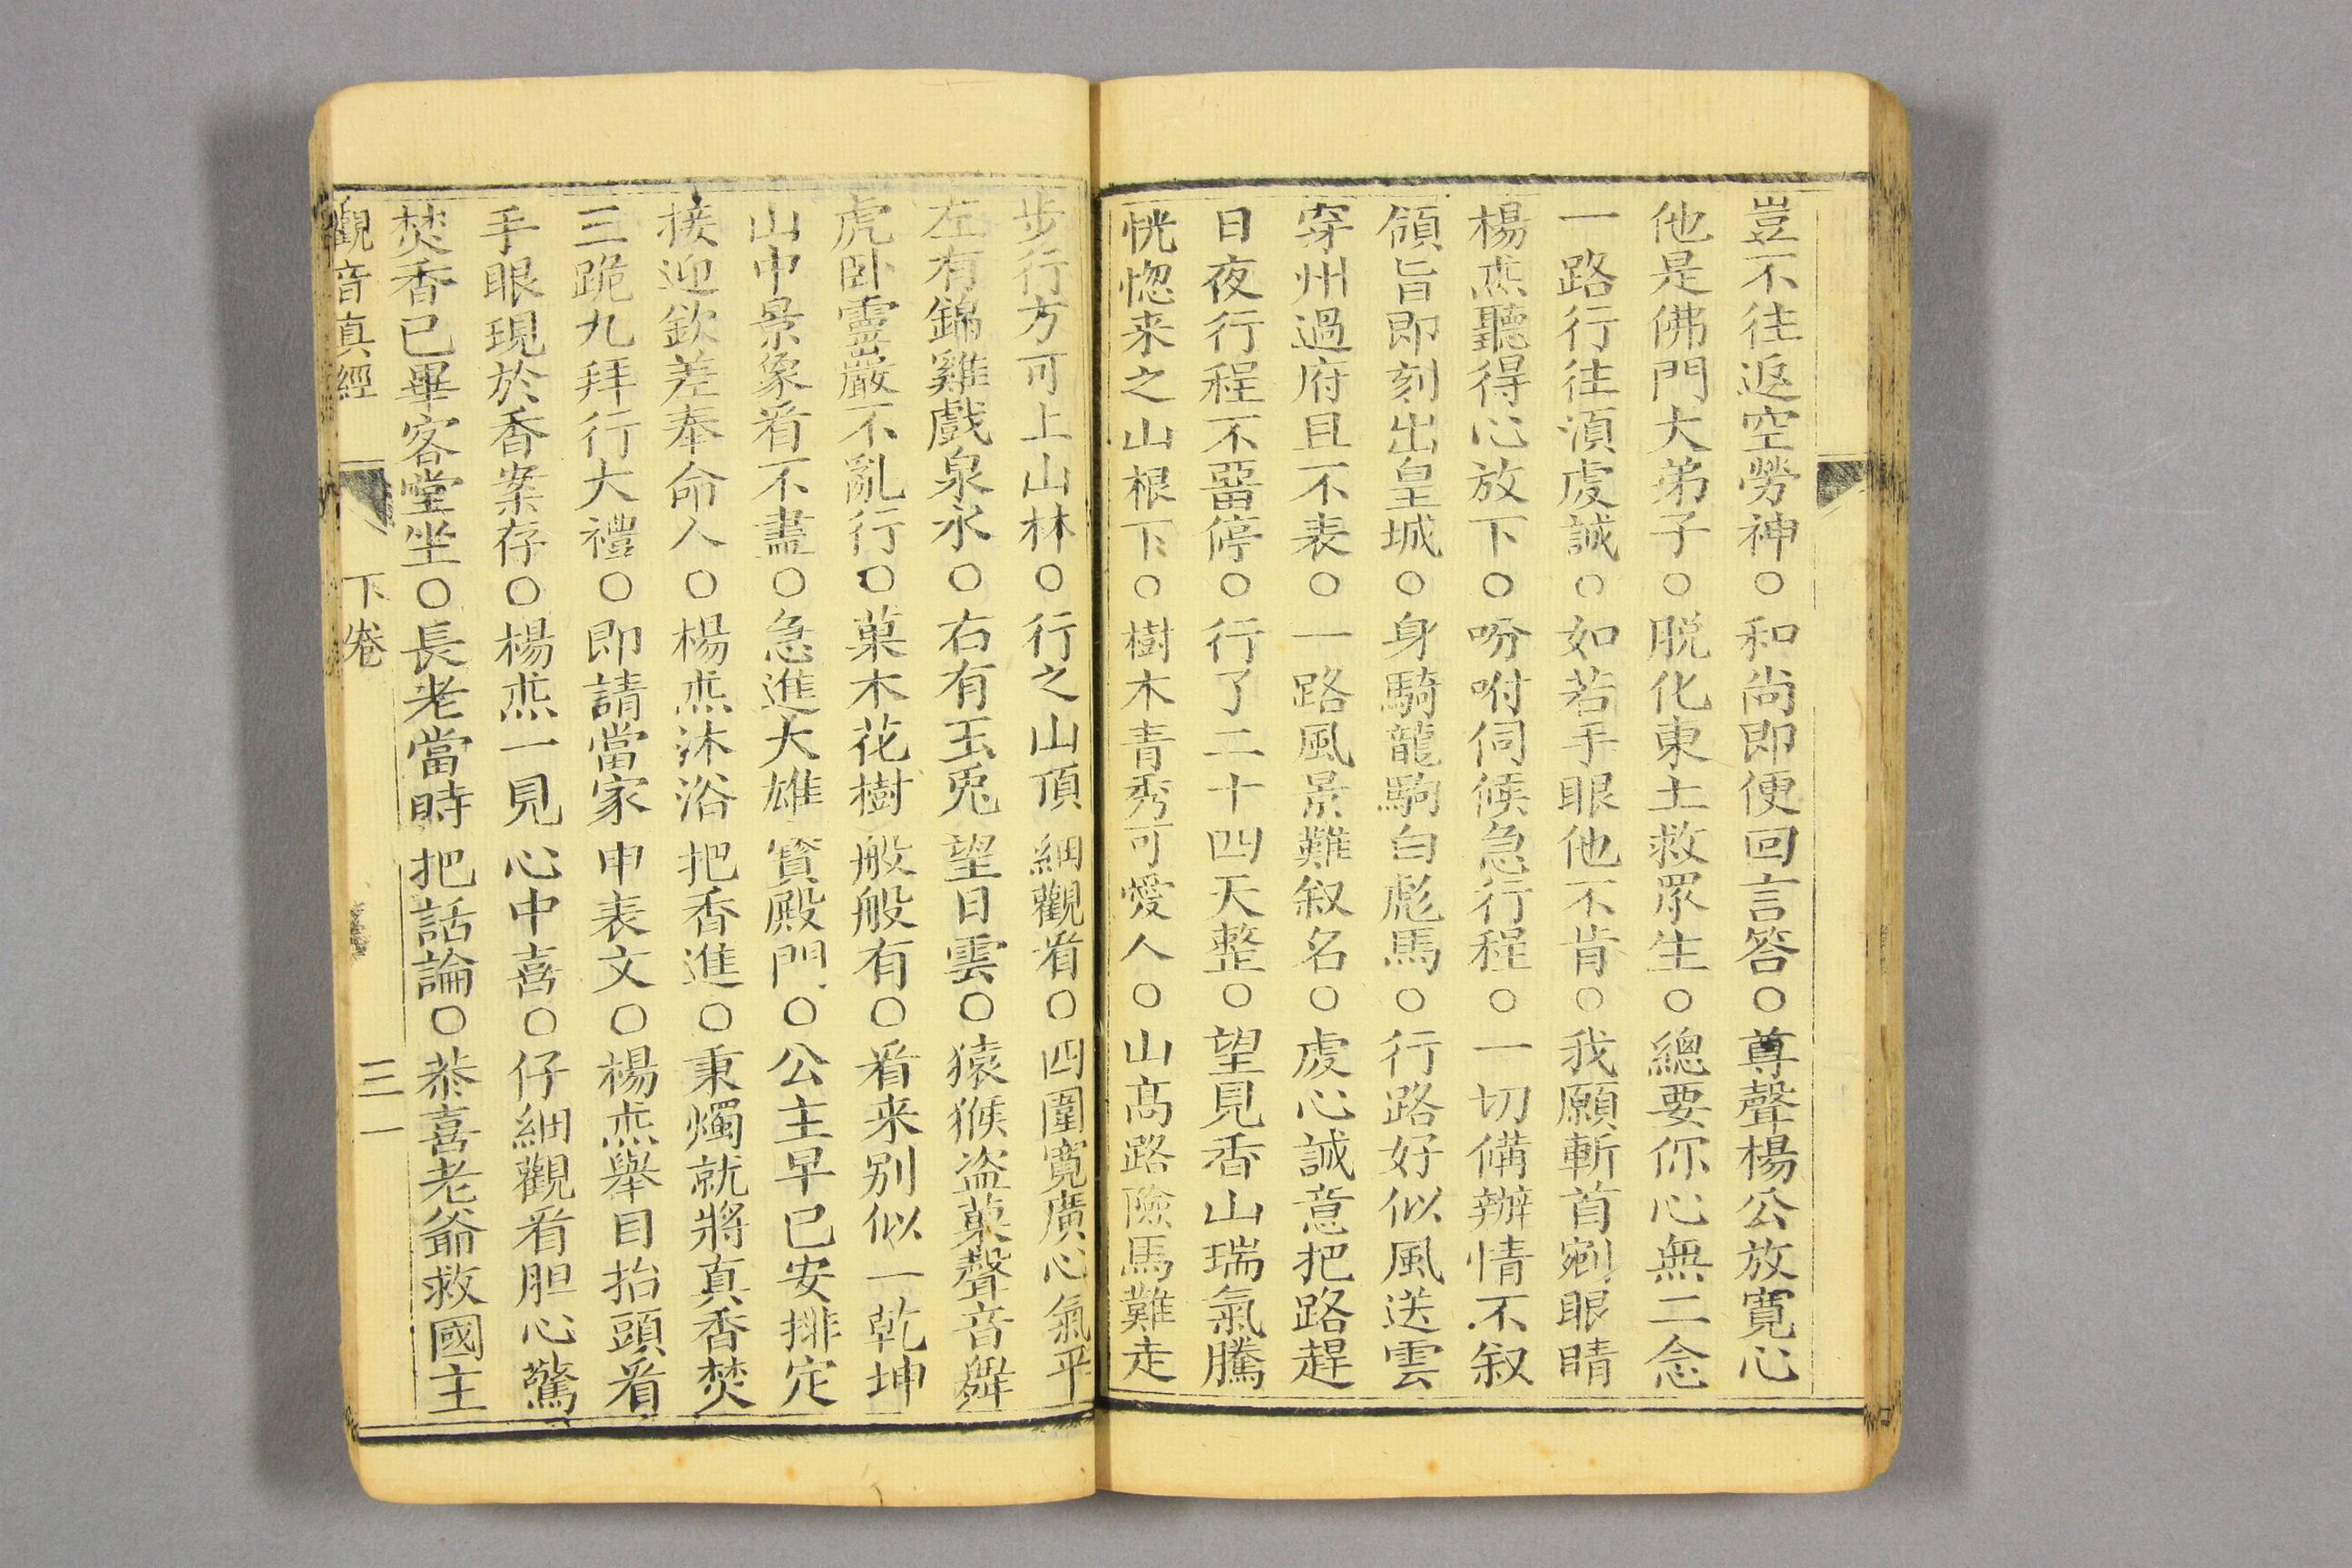 豈不往返空勞神○和尚即便回言答○尊聲楊公放寬心
他是佛門大弟子○脱化東土救眾生○總要你心無二念
一路行往湏虔誠○如若手眼他不肯○我願斬首剜眼睛
楊烝聽得心放下○吩咐伺候急行程○一切俻辦情不叙
領旨即刻出皇城○身騎龍駒白彪馬○行路好似風送雲
穿州過府且不表○一路風景難叙名○虔心誠意把路趕
日夜行程不畱停○行了二十四天整○望見香山瑞氣騰
恍惚来之山根下○樹木青秀可愛人○山髙路險馬難走
步行方可上山林○行之山頂細觀看○四圍寬廣心氣平
左有錦雞戲泉水○右有玉兎望日雲○猿猴盗菓聲音舞
虎卧靈巖不亂行○菓木花樹般般有○看来别似一乾坤
山中景象看不盡○急進大雄寳殿門○公主早已安排定
接迎欽差奉命人○楊烝沐浴把香進○秉燭就將真香焚
三跪九拜行大禮○即請當家申表文○楊烝舉目抬頭看
手眼現於香案存○楊烝一見心中喜○仔細觀看胆心驚
焚香已畢客堂坐○長老當時把話論○恭喜老爺救國主
觀音真經 下卷 三一